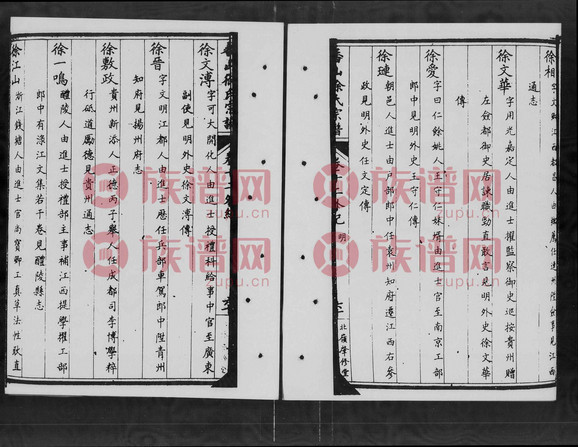 徐相
通志
徐文華 字用光嘉定人由進士擢監察御史巡按貴州贈
左僉都御史居諫職勁直敢言見明外史徐文華
傳
徐愛 字曰仁餘姚人王守仁妹壻由進士官至南京工部
郎中見明外史王守仁傳
徐璉 朝邑人進士由戶部郎中任袁州知府遷江西右參
政見明外史任文定傳
番山徐氏宗譜
明
北嶺肇修堂
徐文溥 字可大開化人由進士授禮科給事中官至廣東
副使見明外史徐文溥傳
徐晉 字文明江都人由進士歷任兵部車駕郎中陞青州
知府見揚州府志
徐敷政 貴州新添人正德丙子舉人任成都司李博學粹
行砥道勵德見貴州通志
徐一鳴 醴陵人由進士授禮部主事補江西提學擢工部
郎中有淥江文集若干卷見醴陵縣志
徐江山 浙江錢塘人由進士官尚寶卿工真草法性耿直
族谱网
zupu.cn
族谱网
zupu.cn
族谱网
zupu.cn
族谱网
zupu.cn